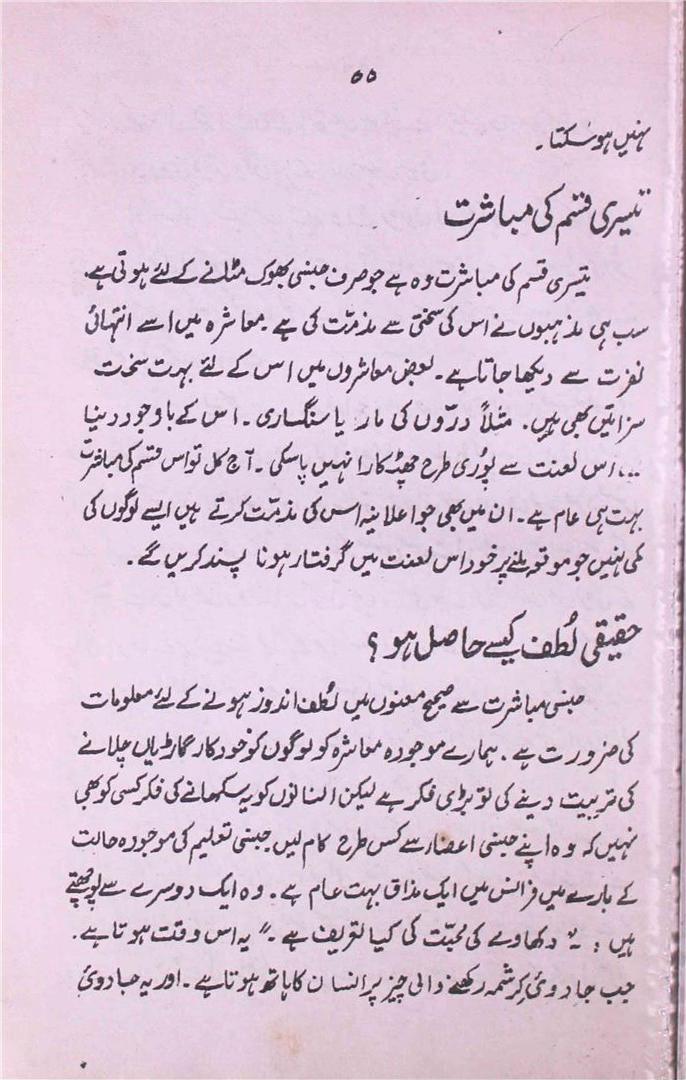 ۵۵
نہیں ہو سکتا۔
تیسری قسم کی مباشرت
تیسری قسم کی مباشرت وہ ہے جو صرف جنسی بھوک مٹانے کے لئے ہوتی ہے۔
سب ہی مذہبوں نے اس کی سختی سے مذمّت کی ہے۔ معاشرہ میں اسے انتہائی
نفرت سے دیکھا جاتا ہے۔ بعض معاشروں میں اس کے لئے بہت سخت
سزائیں بھی ہیں۔ مثلاً درّوں کی مار یا سنگساری۔ اس کے باوجود دنیا
... اس لعنت سے پوُری طرح چھٹکارا نہیں پا سکی۔ آج کل تو اس قسم کی مباشرت
بہت ہی عام ہے۔ ان میں بھی جو اعلانیہ اس کی مذمّت کرتے ہیں ایسے لوگوں کی
کمی نہیں جو موقعہ ملنے پر خود اس لعنت میں گرفتار ہونا پسند کریں گے۔
حقیقی لُطف کیسے حاصل ہو؟
جنسی مباشرت سے صحیح معنوں میں لُطف اندوز ہونے کے لئے معلومات
کی ضرورت ہے۔ ہمارے موجودہ معاشرہ کو لوگوں کو خود کار گاڑیاں چلانے
کی تربیت دینے کی تو بڑی فکر ہے لیکن انسانوں کو یہ سکھانے کی فکر کسی کو بھی
نہیں کہ وہ اپنے جنسی اعضار سے کس طرح کام لیں۔ جنسی تعلیم کی موجودہ حالت
کے بارے میں فرانس میں ایک مذاق بہت عام ہے۔ وہ ایک دوسرے سے پوچھتے
ہیں :۔ "دکھاوے کی محبّت کی کیا تعریف ہے۔" یہ اس وقت ہوتا ہے۔
جب جادوئی کرشمہ رکھنے والی چیز پر انسان کا ہاتھ ہوتا ہے۔ اور یہ جادوئی